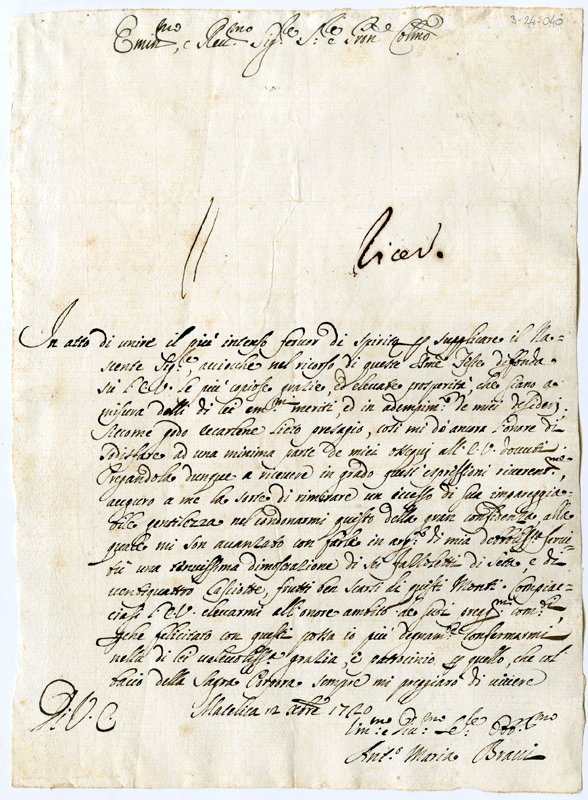 3-24-040
Emin.mo, e Reu.mo Sig.re S.re e Pron.e Colmo
Ricev.
In atto di unire il più intenso fervor di Spirito p supplicare il Na=
scente Sig.re, acciochè nel ricorso di queste SSme Feste diffonda
su l'E.V. le più copiose grazie, ed elevate prosperità, che siano a
misura delli di lei em.mi meriti, ed in adempim.to de miei desiderj;
Siccome godo recartene lieto presagio, così mi dò ancora l'onore di
sodisfare ad una minima parte de miei ossequj all'E.V. dovuti
Pregandola dunque a ricevere in grado questi espressioni riverent.me,
auguro a me la sorte di rimirare un eccesso di sua impareggia=
bile gentilezza nel condonarmi quisto della gran confidenza alla
quale mi son avanzato con farle in att.o di mia devotissa servi=
tù una tenuissima dimostrazione di Sei fazzoletti di Seta, e di
ventiquattro Casciotte, frutti ben scarsi di questi Monti. Compiac=
ciasi l'E.V. elevarmi all'onore ambito de suoi preg.mi com.di,
che felicitato con questi possa io più degnam.te confermarmi
nella di lei valevolissa grazia, e patrocinio p quello, che col
bacio della Sagra Porpora sempre mi preggiarò di vivere
Di V. E.
Matelica 12 Xbre 1740
Um.mo D.mo Se.re Obb.mo
Ant.o Maria Bracci